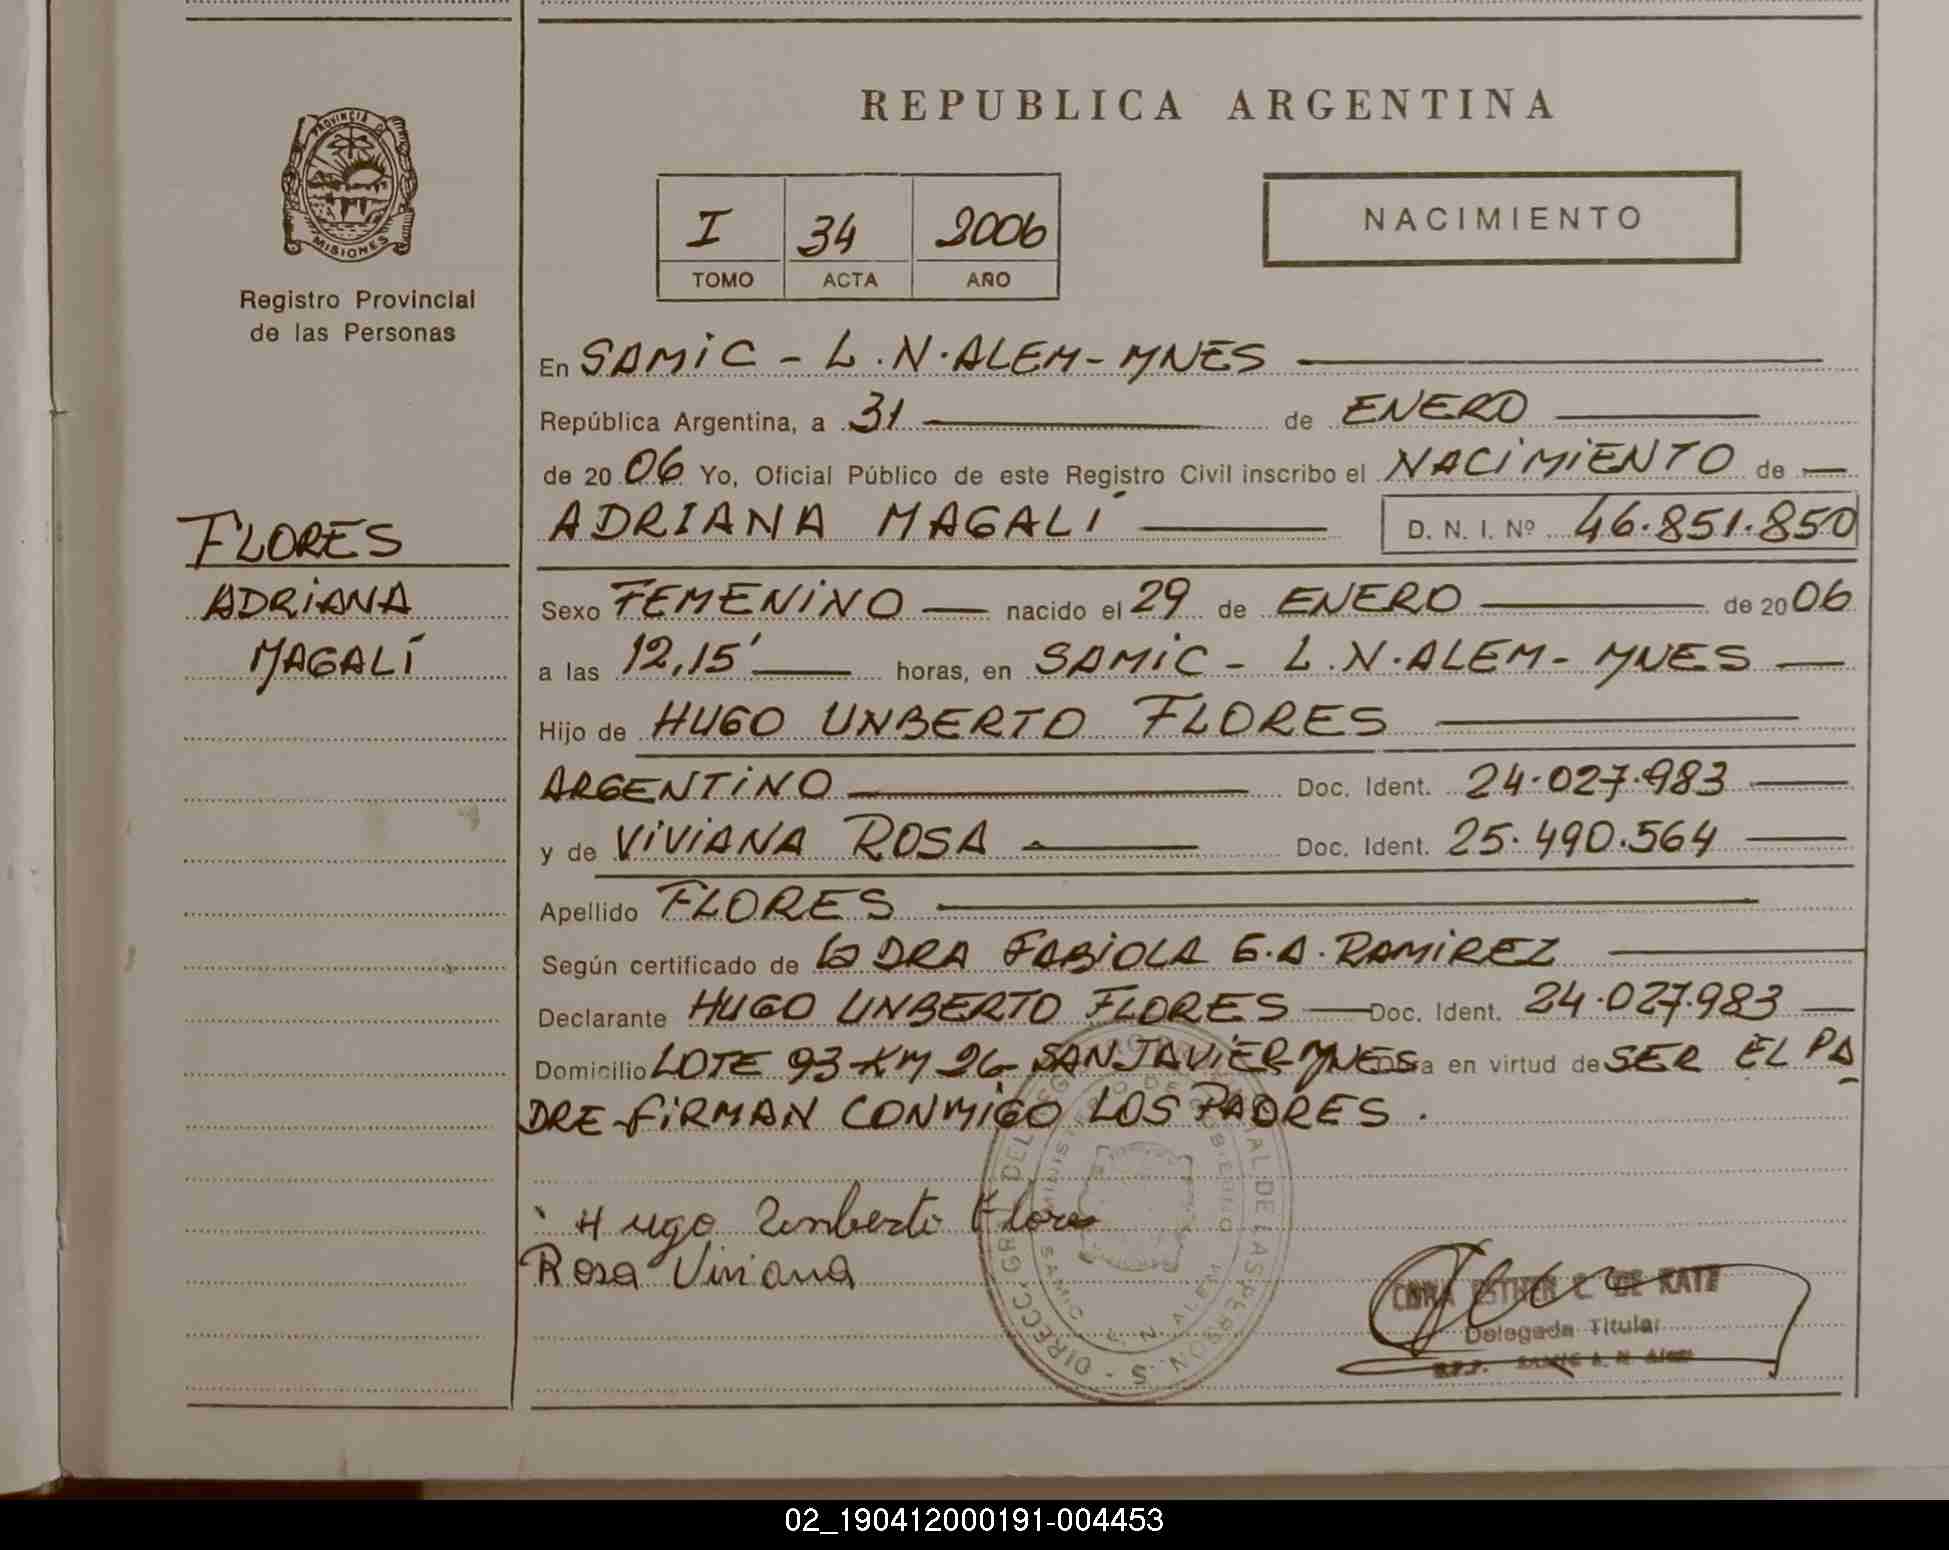 REPUBLICA ARGENTINA
PROVINCIA DE
MISIONES
Registro Provincial
de las Personas
I 34 2006
TOMO ACTA AÑO
NACIMIENTO
En SAMIC - L.N.ALEM - MNES
República Argentina, a 31 de ENERO
de 2006 Yo, Oficial Público de este Registro Civil inscribo el NACIMIENTO de
ADRIANA MAGALÍ D. N. I. Nº 46.851.850
FLORES
ADRIANA
MAGALÍ
Sexo FEMENINO nacido el 29 de ENERO de 2006
a las 12,15' horas, en SAMIC - L.N.ALEM - MNES
Hijo de HUGO UNBERTO FLORES
ARGENTINO Doc. Ident. 24.027.983
y de VIVIANA ROSA Doc. Ident. 25.490.564
Apellido FLORES
Según certificado de la DRA FABIOLA G.A. RAMIREZ
Declarante HUGO UNBERTO FLORES Doc. Ident. 24.027.983
Domicilio LOTE 93-KM 26- SAN JAVIER MNES en virtud de SER EL PA
DRE-FIRMAN CONMIGO LOS PADRES.
Hugo Umberto Flores
Rosa Viviana
DIRECC. GRAL. DEL REGISTRO PROVINCIAL DE LAS PERSONAS
MINISTERIO DE GOBIERNO
SAMIC L. N. ALEM
ESTHER C. DE KATZ
Delegada Titular
R.P.P. SAMIC L. N. Alem
02_190412000191-004453